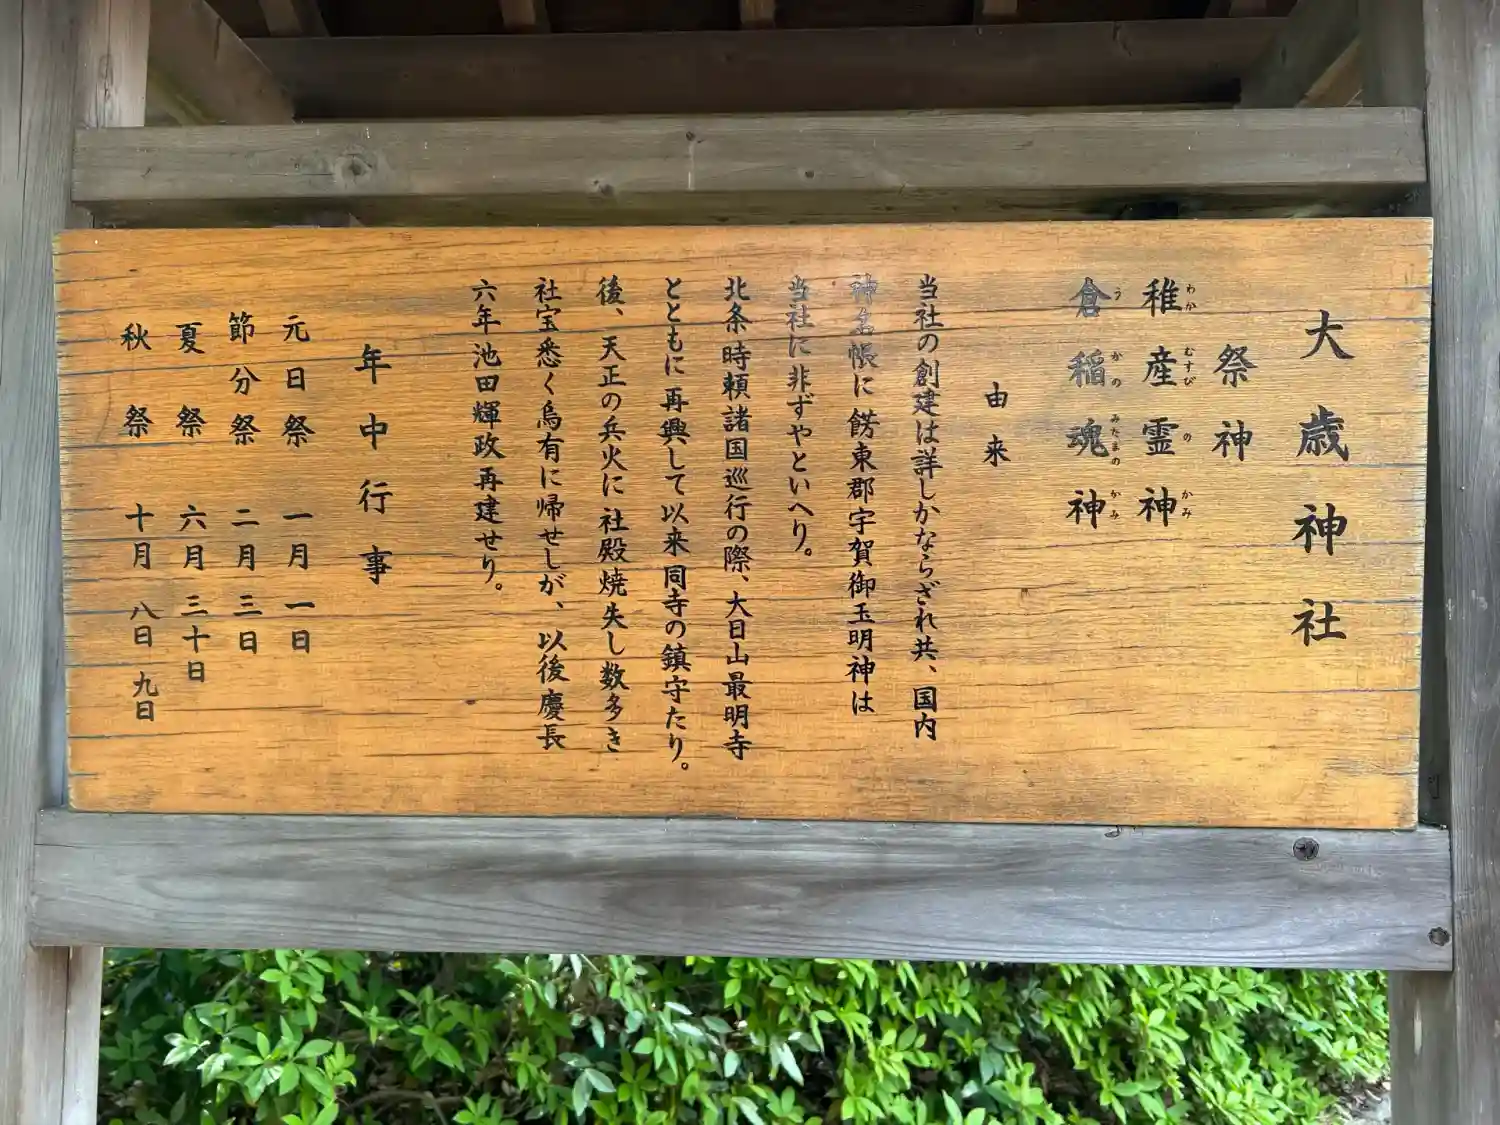 大歳神社
祭神
稚産霊神
わか むすび の かみ
倉稲魂神
う かの みたまの かみ
由来
当社の創建は詳しかならざれ共、国内
神名帳に餝東郡宇賀御玉明神は
当社に非ずやといへり。
北条時頼諸国巡行の際、大日山最明寺
とともに再興して以来同寺の鎮守たり。
後、天正の兵火に社殿焼失し数多き
社宝悉く烏有に帰せしが、以後慶長
六年池田輝政再建せり。
年中行事
元日祭 一月一日
節分祭 二月三日
夏祭 六月三十日
秋祭 十月八日九日